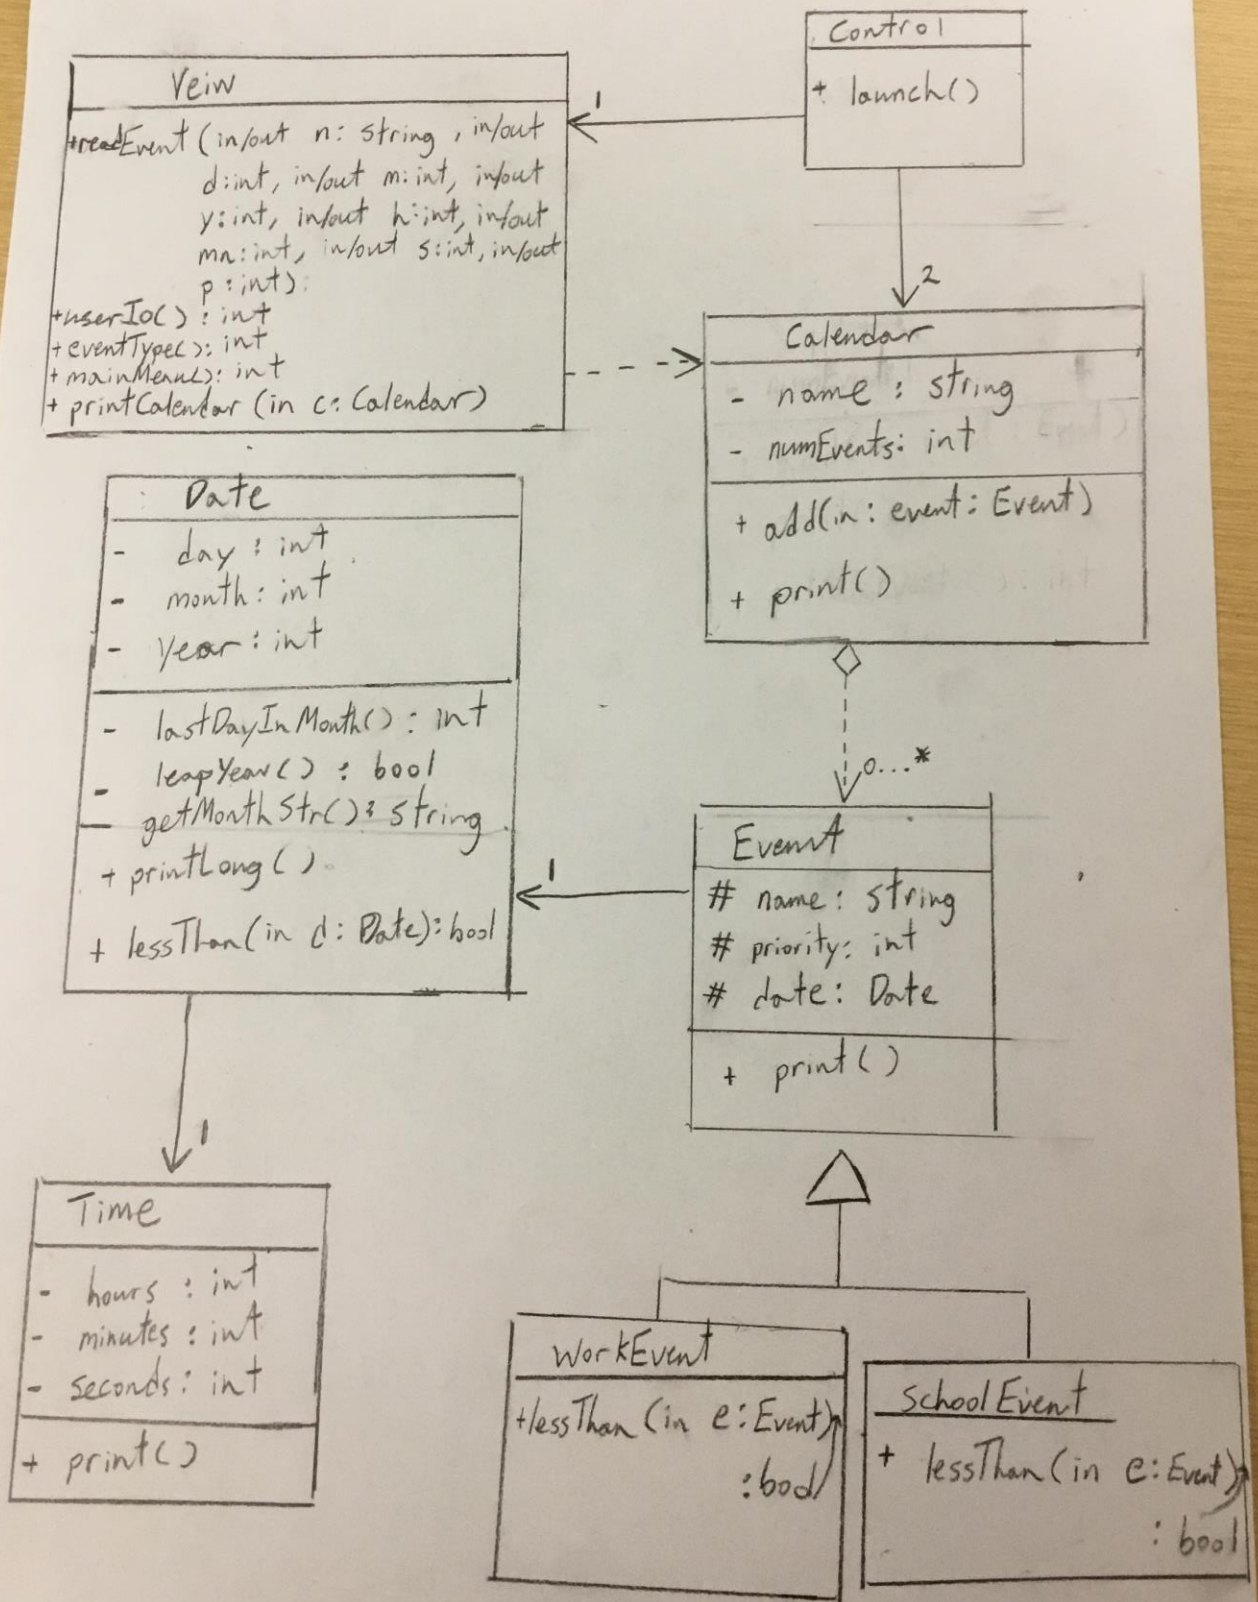 Control
+ launch()
Veiw
+readEvent (in/out n: string, in/out
d:int, in/out m:int, in/out
y:int, in/out h:int, in/out
mn:int, in/out s:int, in/out
p:int):
+userIo() : int
+eventType(): int
+mainMenu(): int
+ printCalendar (in c: Calendar)
1
2
Calendar
- name : string
- numEvents: int
+ add(in: event: Event)
+ print()
Date
- day : int
- month: int
- year: int
- lastDayInMonth() : int
- leapYear() : bool
- getMonthStr(): string
+ printLong()
+ lessThan(in d: Date):bool
0...*
1
Event
# name: string
# priority: int
# date: Date
+ print()
1
Time
- hours : int
- minutes : int
- seconds: int
+ print()
WorkEvent
+lessThan (in e:Event)
:bool
SchoolEvent
+ lessThan(in e:Event)
: bool